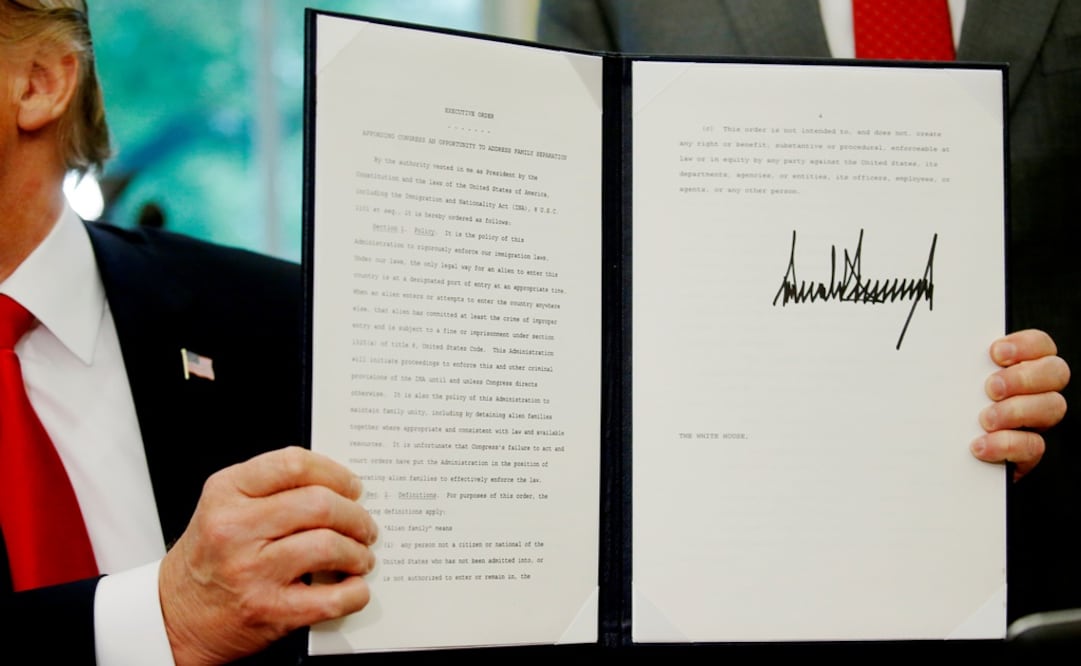 EXECUTIVE ORDER
- - - - - - -
AFFORDING CONGRESS AN OPPORTUNITY TO ADDRESS FAMILY SEPARATION
By the authority vested in me as President by the
Constitution and the laws of the United States of America,
including the Immigration and Nationality Act (INA), 8 U.S.C.
1101 et seq., it is hereby ordered as follows:
Section 1. Policy. It is the policy of this
Administration to rigorously enforce our immigration laws.
Under our laws, the only legal way for an alien to enter this
country is at a designated port of entry at an appropriate time.
When an alien enters or attempts to enter the country anywhere
else, that alien has committed at least the crime of improper
entry and is subject to a fine or imprisonment under section
1325(a) of title 8, United States Code. This Administration
will initiate proceedings to enforce this and other criminal
provisions of the INA until and unless Congress directs
otherwise. It is also the policy of this Administration to
maintain family unity, including by detaining alien families
together where appropriate and consistent with law and available
resources. It is unfortunate that Congress's failure to act and
court orders have put the Administration in the position of
arating alien families to effectively enforce the law.
Sec. 2. Definitions. For purposes of this order, the
wing definitions apply:
"Alien family" means
(i) any person not a citizen or national of the
United States who has not been admitted into, or
is not authorized to enter or remain in, the
4
(c) This order is not intended to, and does not, create
any right or benefit, substantive or procedural, enforceable at
law or in equity by any party against the United States, its
departments, agencies, or entities, its officers, employees, or
agents, or any other person.
THE WHITE HOUSE,